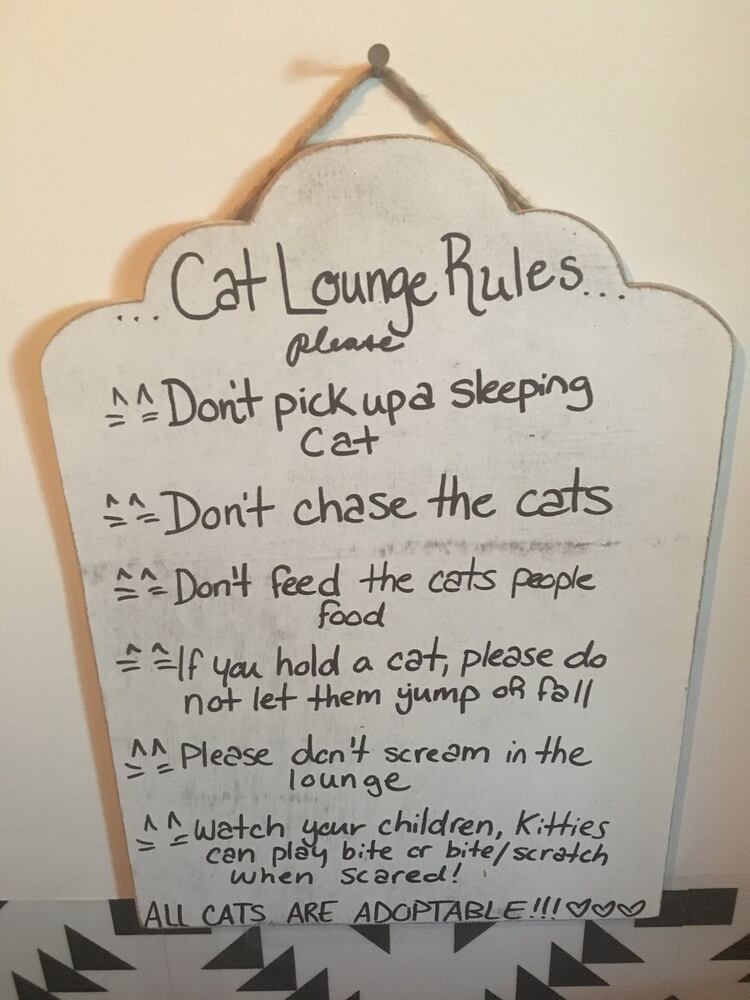 ...Cat Lounge Rules...
please
^^ Don't pick up a sleeping
== cat
^^ Don't chase the cats
==
^^ Don't feed the cats people
== food
^^ If you hold a cat, please do
== not let them jump or fall
^^ Please don't scream in the
== lounge
^^ Watch your children, Kitties
== can play bite or bite/scratch
when scared!
ALL CATS ARE ADOPTABLE!!! ♡♡♡